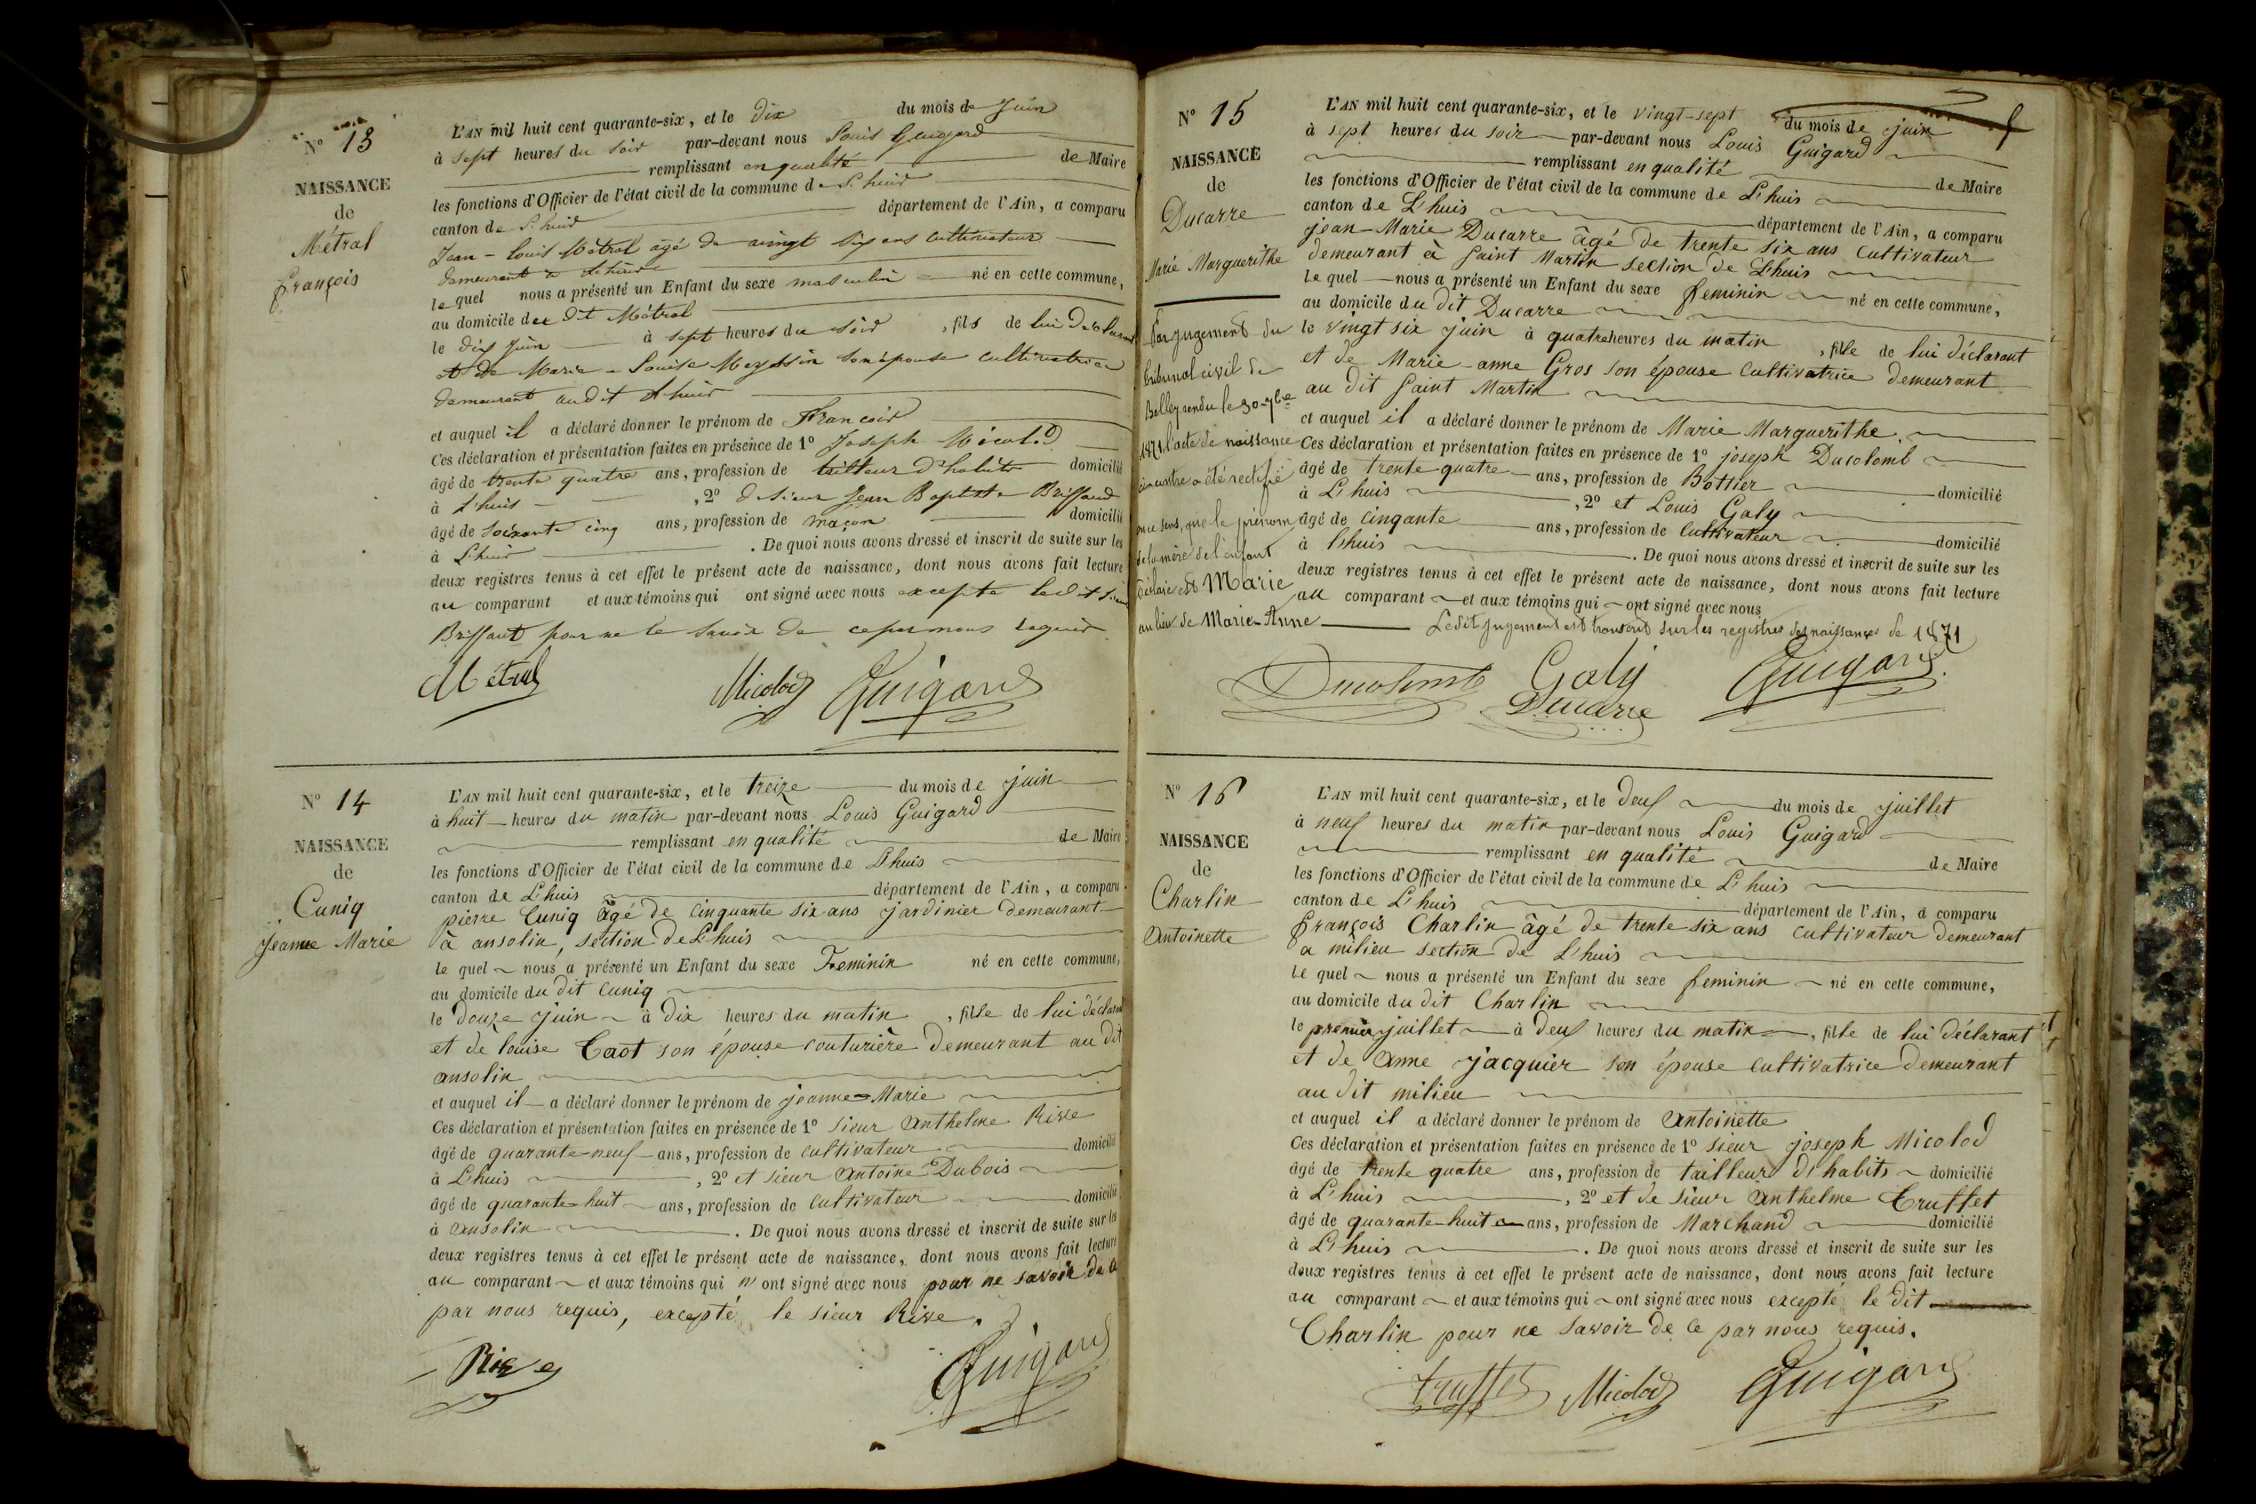 N° 13
NAISSANCE
de
Métral
François
L'AN mil huit cent quarante-six, et le dix du mois de juin
à sept heures du soir par-devant nous Louis Guigard
remplissant en qualité de Maire
les fonctions d'Officier de l'état civil de la commune de L'huis
canton de L'huis département de l'Ain, a comparu
Jean-Louis Métral âgé de vingt six ans cultivateur
demeurant à Lhuis
le quel nous a présenté un Enfant du sexe masculin né en cette commune,
au domicile du dit Métral
le dix juin à sept heures du soir, fils de lui déclarant
et de Marie-Louise son épouse cultivatrice
demeurant au dit Lhuis
et auquel il a déclaré donner le prénom de François
Ces déclaration et présentation faites en présence de 1° Joseph Micolod
âgé de trente quatre ans, profession de tailleur d'habits domicilié
à Lhuis, 2° de sieur Jean Baptiste Briffaud
âgé de soixante cinq ans, profession de maçon domicilié
à L'huis. De quoi nous avons dressé et inscrit de suite sur les
deux registres tenus à cet effet le présent acte de naissance, dont nous avons fait lecture
au comparant et aux témoins qui ont signé avec nous excepté le dit
Briffaut pour ne le savoir de ce par nous requis
Métral Micolod Guigard
N° 14
NAISSANCE
de
Cuniq
Jeanne Marie
L'AN mil huit cent quarante-six, et le treize du mois de juin
à huit heures du matin par-devant nous Louis Guigard
remplissant en qualité de Maire
les fonctions d'Officier de l'état civil de la commune de L'huis
canton de L'huis département de l'Ain, a comparu
pierre Cuniq âgé de cinquante six ans jardinier demeurant
à ansolin, section de L'huis
le quel nous a présenté un Enfant du sexe Feminin né en cette commune,
au domicile du dit Cuniq
le douze juin à dix heures du matin, fille de lui déclarant
et de louise Caot son épouse couturière demeurant au dit
ansolin
et auquel il a déclaré donner le prénom de jeanne-Marie
Ces déclaration et présentation faites en présence de 1° sieur Anthelme Rive
âgé de quarante-neuf ans, profession de cultivateur domicilié
à L'huis, 2° et sieur Antoine Dubois
âgé de quarante-huit ans, profession de cultivateur domicilié
à ansolin. De quoi nous avons dressé et inscrit de suite sur les
deux registres tenus à cet effet le présent acte de naissance, dont nous avons fait lecture
au comparant et aux témoins qui n'ont signé avec nous pour ne savoir de ce
par nous requis, excepté le sieur Rive.
Rive Guigard
N° 15
NAISSANCE
de
Ducarre
Marie Marguerithe
Par jugement du
tribunal civil de
Belley rendu le 30 7bre
1871, l'acte de naissance
ci-contre a été rectifié
en ce sens, que le prénom
de la mère de l'enfant
déclaré est Marie
au lieu de Marie-Anne
L'AN mil huit cent quarante-six, et le vingt-sept du mois de juin
à sept heures du soir par-devant nous Louis Guigard
remplissant en qualité de Maire
les fonctions d'Officier de l'état civil de la commune de L'huis
canton de L'huis département de l'Ain, a comparu
jean-Marie Ducarre âgé de trente six ans cultivateur
demeurant à Saint Martin section de L'huis
le quel nous a présenté un Enfant du sexe feminin né en cette commune,
au domicile du dit Ducarre
le vingt six juin à quatre heures du matin, fille de lui déclarant
et de Marie-anne Gros son épouse cultivatrice demeurant
au dit Saint Martin
et auquel il a déclaré donner le prénom de Marie Marguerithe.
Ces déclaration et présentation faites en présence de 1° joseph Ducolomb
âgé de trente quatre ans, profession de Bottier domicilié
à L'huis, 2° et Louis Galy
âgé de cinqante ans, profession de cultivateur domicilié
à l'huis. De quoi nous avons dressé et inscrit de suite sur les
deux registres tenus à cet effet le présent acte de naissance, dont nous avons fait lecture
au comparant et aux témoins qui ont signé avec nous
Ledit jugement est transcrit sur les registres des naissances de 1871
Ducolomb Galy Guigard
Ducarre
N° 16
NAISSANCE
de
Charlin
Antoinette
L'AN mil huit cent quarante-six, et le deux du mois de juillet
à neuf heures du matin par-devant nous Louis Guigard
remplissant en qualité de Maire
les fonctions d'Officier de l'état civil de la commune de L'huis
canton de L'huis département de l'Ain, a comparu
françois Charlin âgé de trente six ans cultivateur demeurant
a milieu section de L'huis
le quel nous a présenté un Enfant du sexe feminin né en cette commune,
au domicile du dit Charlin
le premier juillet à deux heures du matin, fille de lui déclarant
et de Anne jacquier son épouse cultivatrice demeurant
au dit milieu
et auquel il a déclaré donner le prénom de Antoinette
Ces déclaration et présentation faites en présence de 1° sieur joseph Micolod
âgé de trente quatre ans, profession de tailleur d'habits domicilié
à L'huis, 2° et de sieur Anthelme Truffet
âgé de quarante-huit ans, profession de Marchand domicilié
à L'huis. De quoi nous avons dressé et inscrit de suite sur les
deux registres tenus à cet effet le présent acte de naissance, dont nous avons fait lecture
au comparant et aux témoins qui ont signé avec nous excepté le dit
Charlin pour ne savoir de ce par nous requis.
truffet Micolod Guigard